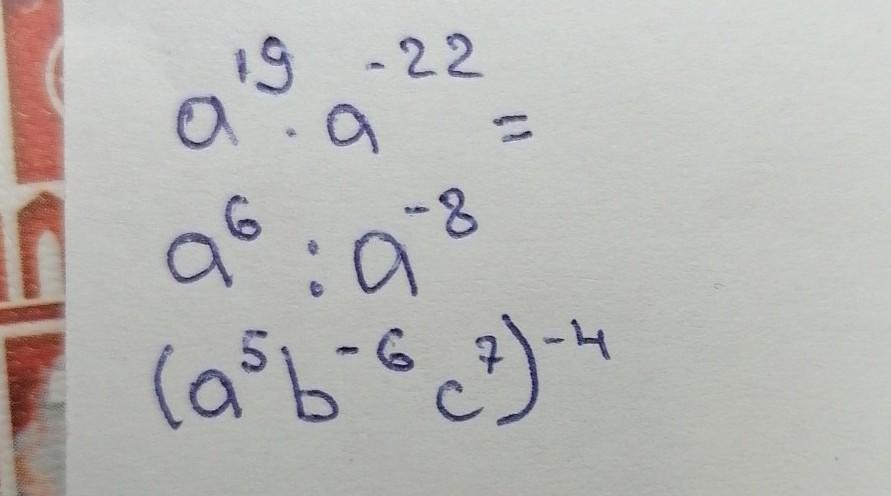 a¹⁹ · a⁻²² =
a⁶ : a⁻⁸
(a⁵b⁻⁶c⁷)⁻⁴